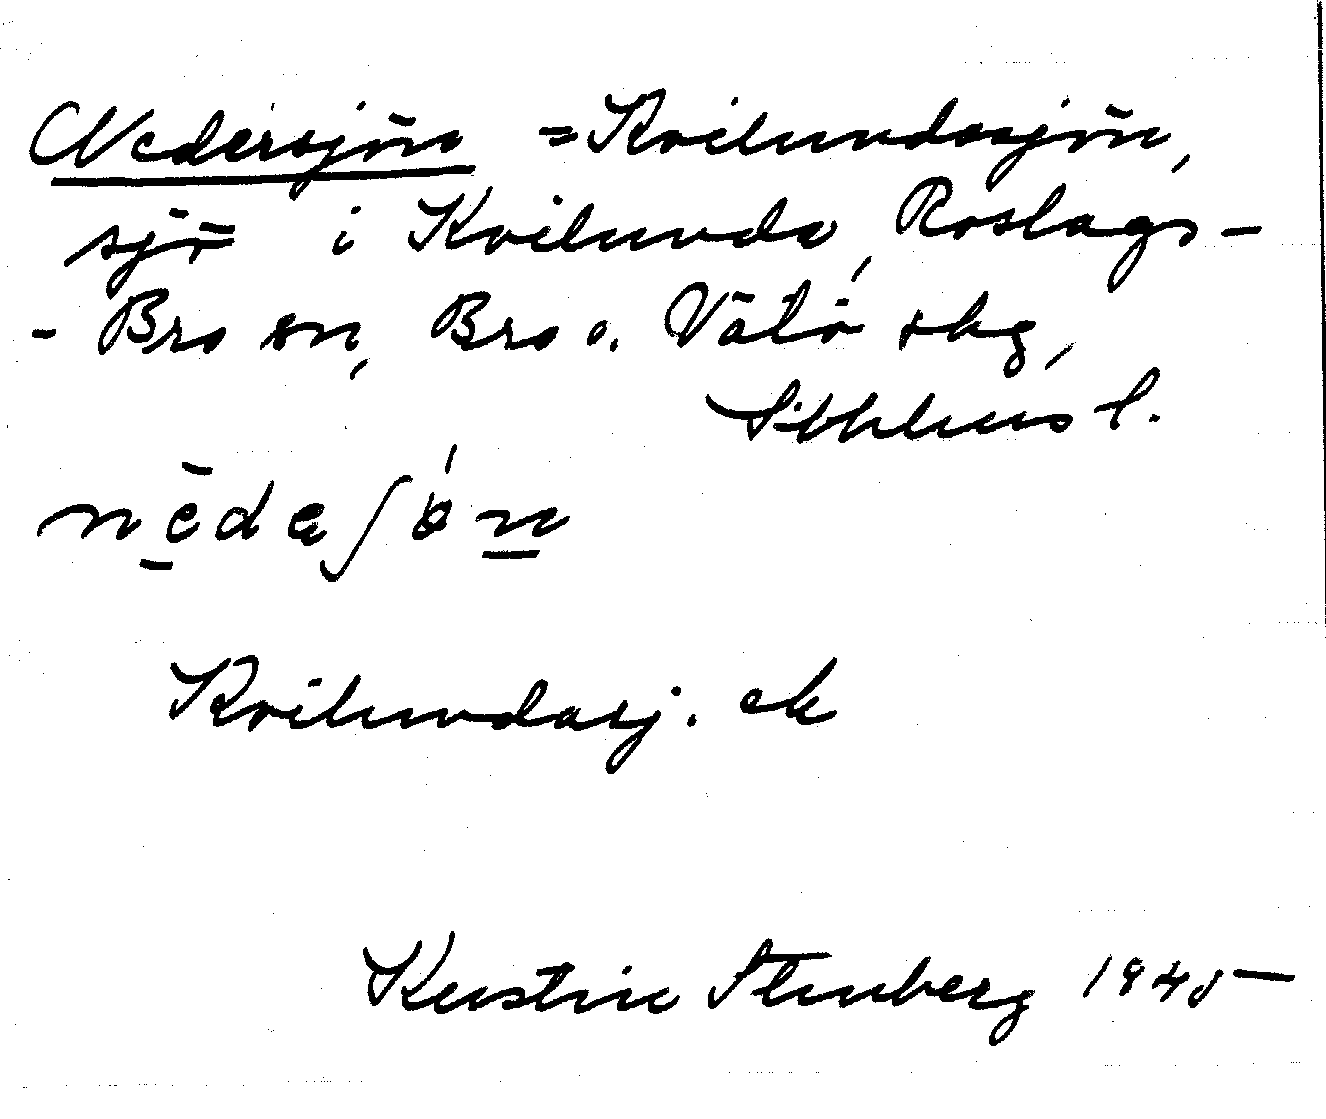 Nedersjön = Kvilundasjön,
sjö i Kvilunda, Roslags-
- Bro sn, Bro o. Vätö skg,
Sthlms l.
Kvilundasj. ek
Kerstin Stenberg 1945